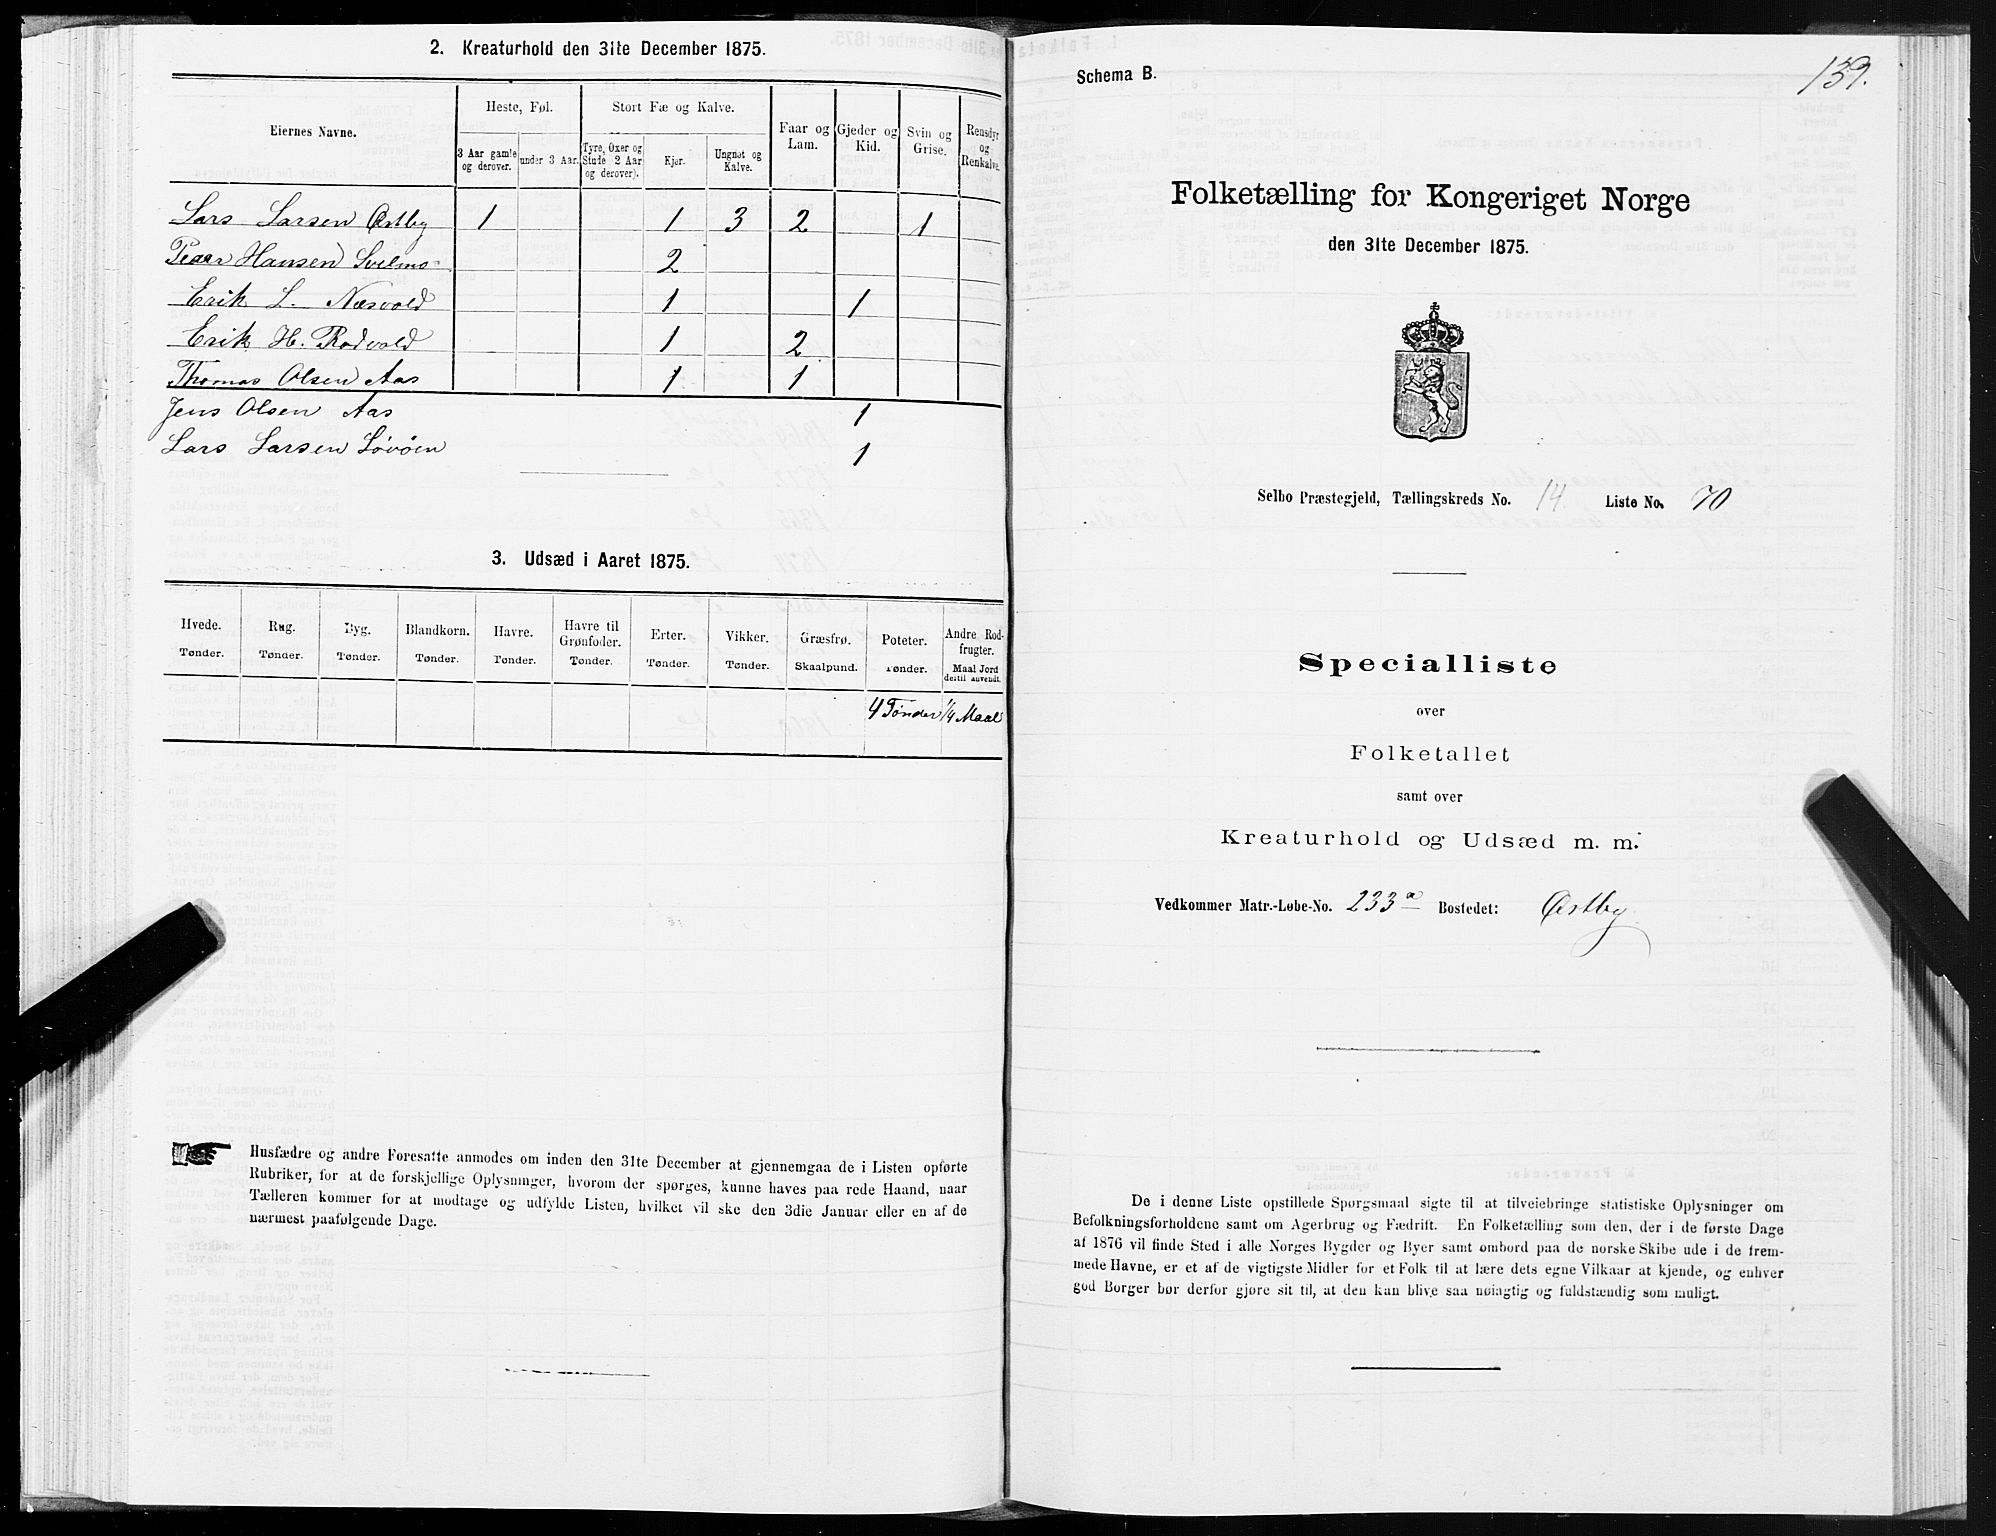 2. Kreaturhold den 31te December 1875.
Eiernes Navne.
Heste, Føl.
Stort Fæ og Kalve.
Faar og Lam.
Gjeder og Kid.
Svin og Grise.
Rensdyr og Renkalve.
3 Aar gamle og derover.
under 3 Aar.
Tyre, Oxer og Stude 2 Aar og derover).
Kjør.
Ungnøt og Kalve.
Lars Larsen Østby 1 1 3 2 1
Peder Hansen Svelmo 2
Erik L. Næsvold 1 1
Erik H. Rodvold 1 2
Thomas Olsen Aas 1 1
Jens Olsen Aas 1
Lars Larsen Løvøen 1
3. Udsæd i Aaret 1875.
Hvede. Rug. Byg. Blandkorn. Havre. Havre til Grønfoder. Erter. Vikker. Græsfrø. Poteter. Andre Rodfrugter.
Tønder. Tønder. Tønder. Tønder. Tønder. Tønder. Tønder. Tønder. Skaalpund. Tønder. Maal Jord dertil anvendt.
4 Tönder 1/4 Maal
Husfædre og andre Foresatte anmodes om inden den 31te December at gjennemgaa de i Listen opførte
Rubriker, for at de forskjellige Oplysninger, hvorom der spørges, kunne haves paa rede Haand, naar
Tælleren kommer for at modtage og udfylde Listen, hvilket vil ske den 3die Januar eller en af de
nærmest paafølgende Dage.
139.
Schema B.
Folketælling for Kongeriget Norge
den 31te December 1875.
Selbo Præstegjeld, Tællingskreds No. 14. Liste No. 70
Specialliste
over
Folketallet
samt over
Kreaturhold og Udsæd m. m.
Vedkommer Matr.-Løbe-No. 233a Bostedet: Østby.
De i denne Liste opstillede Spørgsmaal sigte til at tilveiebringe statistiske Oplysninger om
Befolkningsforholdene samt om Agerbrug og Fædrift. En Folketælling som den, der i de første Dage
af 1876 vil finde Sted i alle Norges Bygder og Byer samt ombord paa de norske Skibe ude i de frem-
mede Havne, er et af de vigtigste Midler for et Folk til at lære dets egne Vilkaar at kjende, og enhver
god Borger bør derfor gjøre sit til, at den kan blive saa nøiagtig og fuldstændig som muligt.